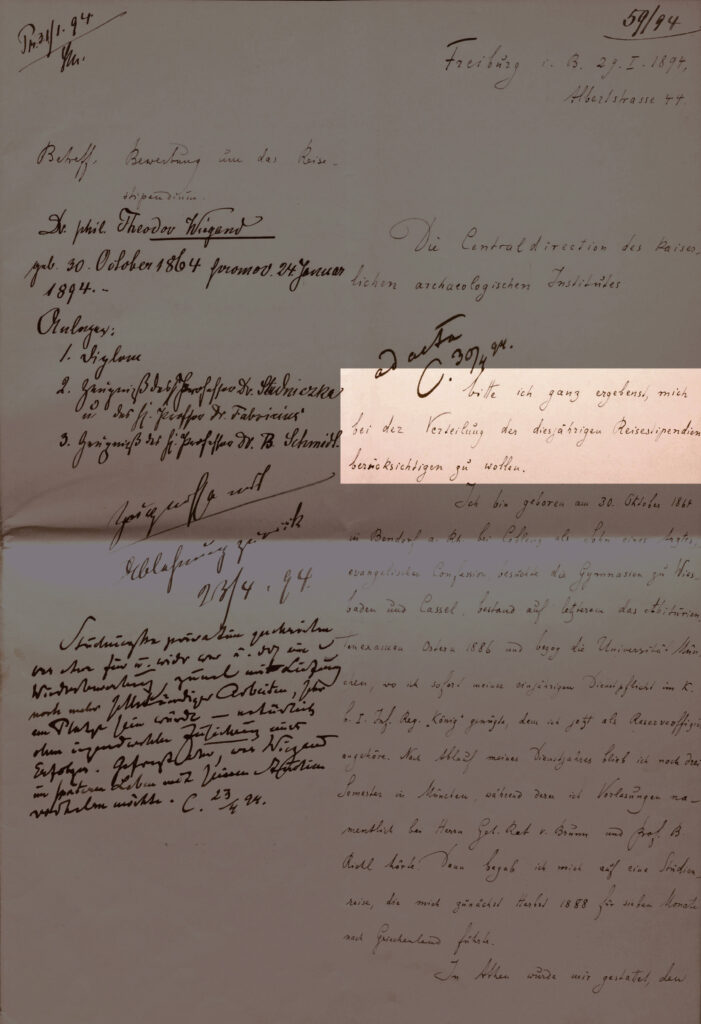 59/94
Pr. 31/1. 94
Freiburg i. B. 29. I. 1894,
Albertstrasse 44.
Betreff. Bewerbung um das Reise-
stipendium.
Dr. phil. Theodor Wiegand
geb. 30. October 1864 promov. 24 Januar
1894.-
Anlagen:
1. Diplom
2. Zeugniß des H. Professor Dr. Studniczka
u des H. Professor Dr. Fabricius
3. Zeugniß des H. Professor Dr. B. Schmidt.
Zeugnisse mit
Ablehnung zurück
23/4. 94
Studniczka privatim geschrieben
was etwa für u. wider war u. daß eine
Wiederbewerbung, zumal mit
noch mehr selbständiger Arbeiten, sehr
am Platze sein würde — natürlich
ohne irgendwelche Zusicherung eines
Erfolges. Gefragt, was Wiegend
im späteren Leben mit seinen Studien
möchte. C. 23/4 94.
Die Centraldirection des Kaiser-
lichen archaeologischen Institutes
ad acta
C. 30/4 94.
bitte ich ganz ergebenst, mich
bei der Verteilung der diesjährigen Reisestipendien
berücksichtigen zu wollen.
Ich bin geboren am 30. Oktober 1864
in Bendorf a. Rh. bei Coblenz als Sohn eines Arztes,
evangelischer Confession besuchte die Gymnasien zu Wies-
baden und Cassel, bestand auf letzterem das Abiturien-
tenexamen Ostern 1886 und bezog die Universität Mün-
chen, wo ich sofort meiner einjährigen Dienstpflicht im K.
b. I. Inf. Reg. „König" genügte, dem ich jetzt als Reserveoffizier
angehöre. Nach Ablauf meines Dienstjahres blieb ich noch drei
Semester in München, während deren ich Vorlesungen na-
mentlich bei Herrn Geh. Rat v. Brunn und Prof. B.
Riehl hörte. Dann begab ich mich auf eine Studien-
reise, die mich zunächst Herbst 1888 für sieben Monate
nach Griechenland führte.
In Athen wurde mir gestattet, den